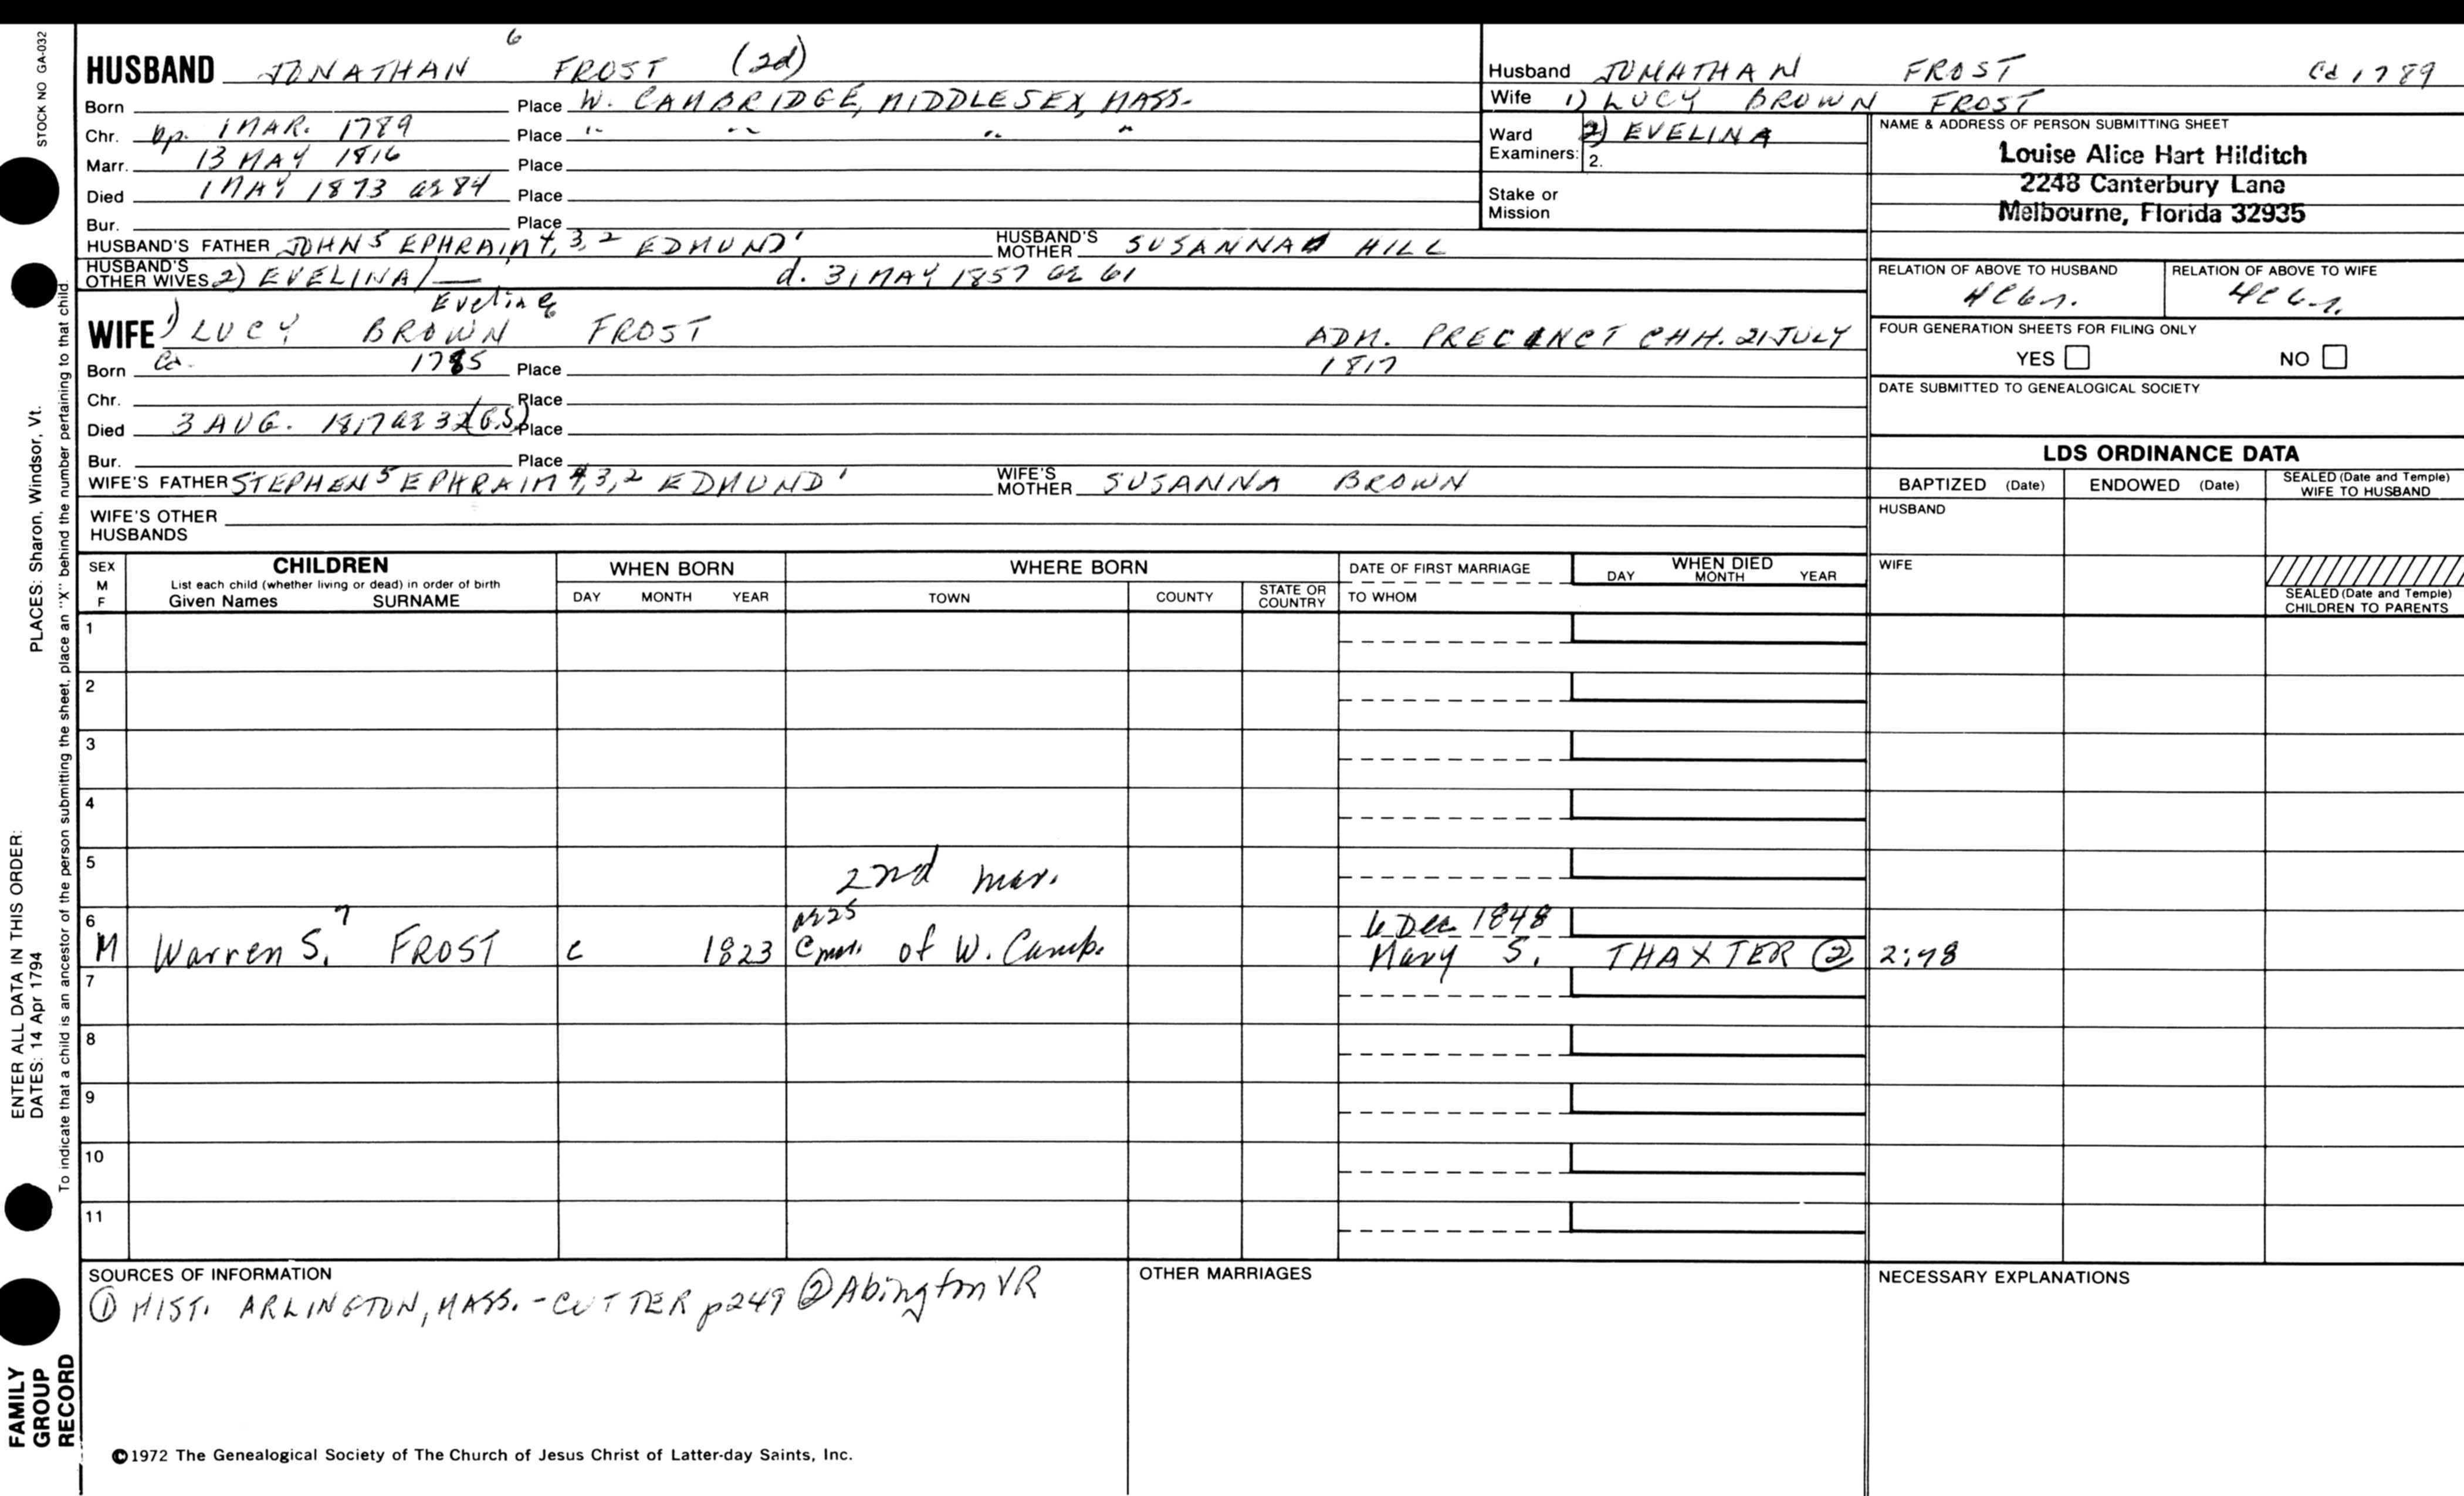 HUSBAND JONATHAN 6 FROST (2d)
Born Place W. CAMBRIDGE, MIDDLESEX, MASS.
Chr. bp. 1 MAR. 1789 Place " " " "
Marr. 13 MAY 1816 Place
Died 1 MAY 1873 ae 84 Place
Bur. Place
HUSBAND'S FATHER JOHN 5 EPHRAIM 4, 3, 2 EDMUND 1 HUSBAND'S MOTHER SUSANNAH HILL
HUSBAND'S OTHER WIVES 2) EVELINA/— d. 31 MAY 1857 ae 61
Eveline
WIFE 1) LUCY BROWN FROST ADM. PRECINCT CHH. 21 JULY
Born Ca. 1785 Place 1817
Chr. Place
Died 3 AUG. 1817 ae 32 (G.S.) Place
Bur. Place
WIFE'S FATHER STEPHEN 5 EPHRAIM 4, 3, 2 EDMUND 1 WIFE'S MOTHER SUSANNA BROWN
WIFE'S OTHER HUSBANDS
Husband JONATHAN FROST Cd 1789
Wife 1) LUCY BROWN FROST
Ward Examiners: 2) EVELINA
2.
Stake or Mission
NAME & ADDRESS OF PERSON SUBMITTING SHEET
Louise Alice Hart Hilditch
2248 Canterbury Lane
Melbourne, Florida 32935
RELATION OF ABOVE TO HUSBAND RELATION OF ABOVE TO WIFE
FOUR GENERATION SHEETS FOR FILING ONLY
YES NO
DATE SUBMITTED TO GENEALOGICAL SOCIETY
LDS ORDINANCE DATA
BAPTIZED (Date) ENDOWED (Date) SEALED (Date and Temple) WIFE TO HUSBAND
HUSBAND
WIFE
SEALED (Date and Temple) CHILDREN TO PARENTS
SEX M F
CHILDREN
List each child (whether living or dead) in order of birth
Given Names SURNAME
WHEN BORN
DAY MONTH YEAR
WHERE BORN
TOWN COUNTY STATE OR COUNTRY
DATE OF FIRST MARRIAGE
TO WHOM
WHEN DIED
DAY MONTH YEAR
1
2
3
4
5 2nd mar.
6 7 ae 25 6 Dec 1848
M Warren S. FROST c 1823 of W. Camb. Mary S. THAXTER ② 2:78
7
8
9
10
11
SOURCES OF INFORMATION
① HIST. ARLINGTON, MASS. - CUTTER p249 ② Abington VR
OTHER MARRIAGES
NECESSARY EXPLANATIONS
©1972 The Genealogical Society of The Church of Jesus Christ of Latter-day Saints, Inc.
STOCK NO GA-032
PLACES: Sharon, Windsor, Vt.
ENTER ALL DATA IN THIS ORDER:
DATES: 14 Apr 1794
To indicate that a child is an ancestor of the person submitting the sheet, place an "X" behind the number pertaining to that child.
FAMILY
GROUP
RECORD